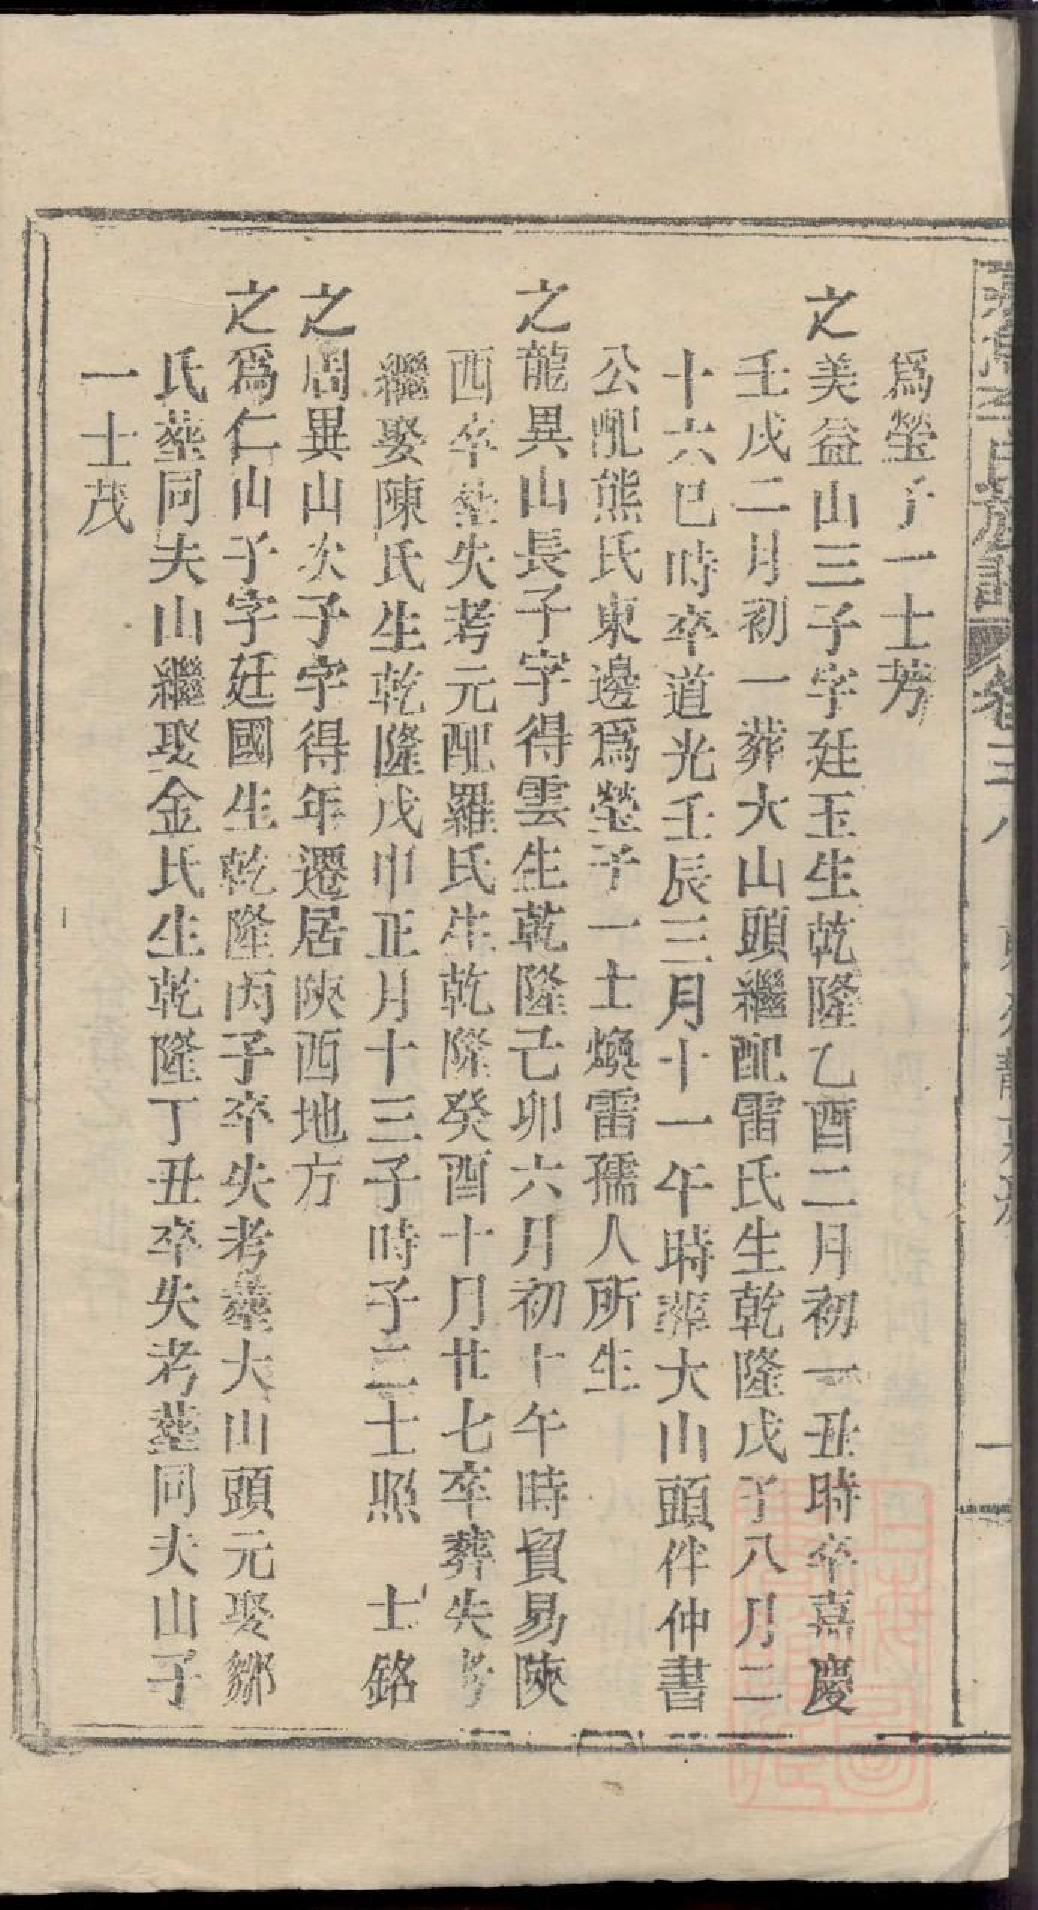 李氏族譜 卷三八
爲塋子一士芳
之美益山三子字廷玉生乾隆乙酉二月初一丑時卒嘉慶
壬戌二月初一葬大山頭繼配雷氏生乾隆戊子八月二
十六巳時卒道光壬辰三月十一午時葬大山頭伴仲書
公配熊氏東邊爲塋子一士煥雷孺人所生
之龍異山長子字得雲生乾隆己卯六月初十午時貿易陝
西卒塟失考元配羅氏生乾隆癸酉十月廿七卒葬失考
繼娶陳氏生乾隆戊申正月十三子時子二士照 士銘
之周異山次子字得年遷居陝西地方
之爲仁山子字廷國生乾隆丙子卒失考塟大山頭元娶鄒
氏塟同夫山繼娶金氏生乾隆丁丑卒失考塟同夫山子
一士茂